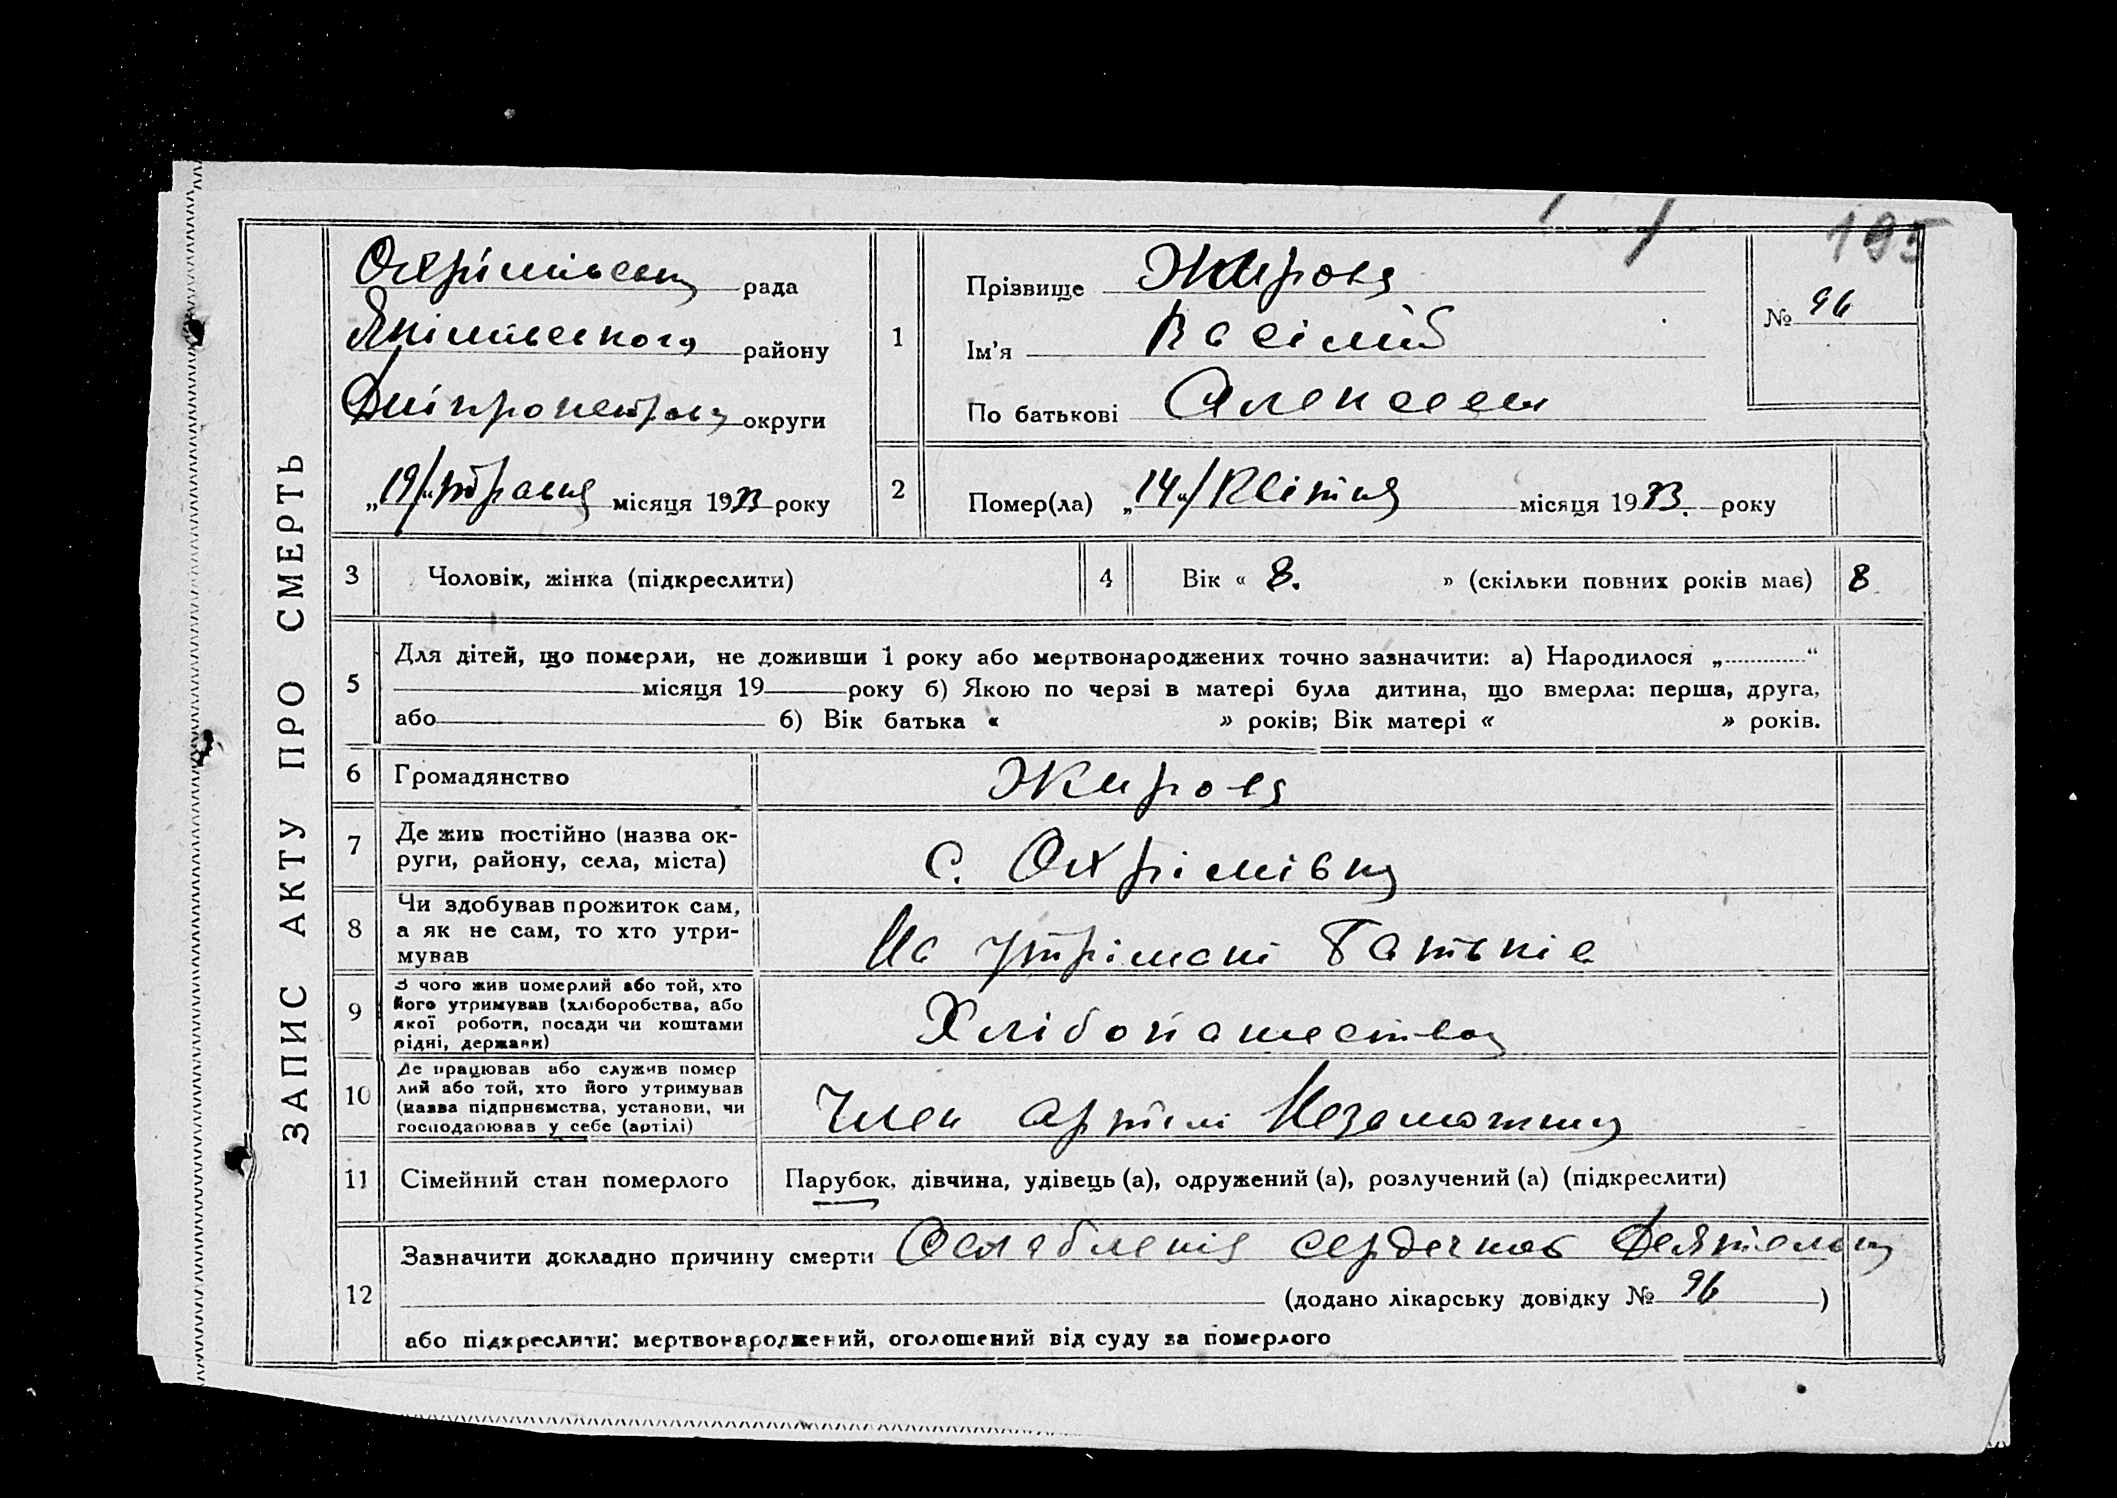 195
ЗАПИС АКТУ ПРО СМЕРТЬ
Охрімівська рада
Якімівського району
Дніпропетров округи
„19" травня місяця 1933 року
1
Прізвище Жирова
Ім'я Васілій
По батькові Алексеев
№ 96
2
Помер(ла) „14" Квітня місяця 1933. року
3 Чоловік, жінка (підкреслити)
4 Вік « 8. » (скільки повних років має) 8
5
Для дітей, що померли, не доживши 1 року або мертвонароджених точно зазначити: а) Народилося „ “
місяця 19 року б) Якою по черзі в матері була дитина, що вмерла: перша, друга,
або б) Вік батька « » років; Вік матері « » років.
6 Громадянство Жирова
7
Де жив постійно (назва ок-
руги, району, села, міста)
с. Охрімівка
8
Чи здобував прожиток сам,
а як не сам, то хто утри-
мував
На утрімані батьків
9
З чого жив померлий або той, хто
його утримував (хліборобства, або
якої роботи, посади чи коштами
рідні, держави)
Хлібопашества
10
Де працював або служив помер
лий або той, хто його утримував
(назва підприємства, установи, чи
господарював у себе (артілі)
Член артілі Незаможник
11 Сімейний стан померлого Парубок, дівчина, удівець (а), одружений (а), розлучений (а) (підкреслити)
12
Зазначити докладно причину смерти Ослабленія сердечноъ Деятельн
(додано лікарську довідку № 96 )
або підкреслити: мертвонароджений, оголошений від суду за померлого